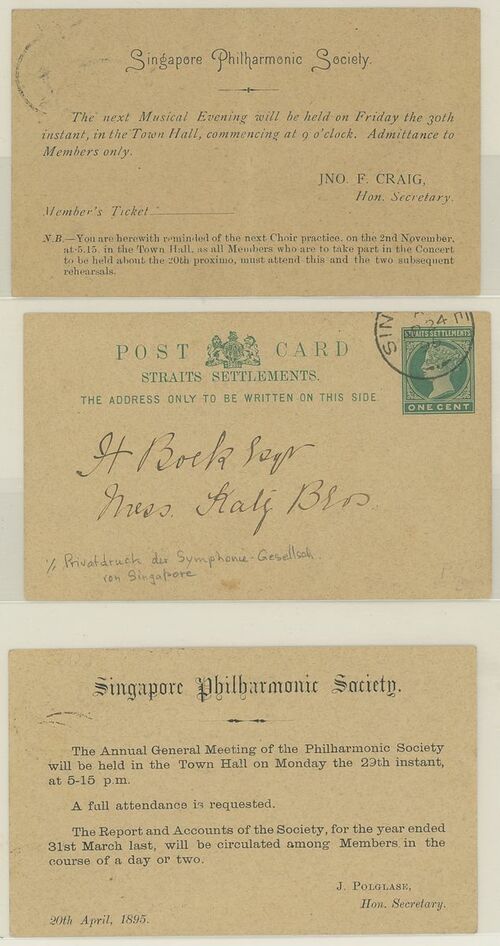 Singapore Philharmonic Society.
The next Musical Evening will be held on Friday the 30th
instant, in the Town Hall, commencing at 9 o'clock. Admittance to
Members only.
JNO. F. CRAIG,
Hon. Secretary.
Member's Ticket
N.B.—You are herewith reminded of the next Choir practice, on the 2nd November,
at 5.15, in the Town Hall, as all Members who are to take part in the Concert
to be held about the 20th proximo, must attend this and the two subsequent
rehearsals.
POST CARD
STRAITS SETTLEMENTS.
THE ADDRESS ONLY TO BE WRITTEN ON THIS SIDE.
SIN
24
STRAITS SETTLEMENTS
ONE CENT
H Bock Esqr
Mess. Katz Bros
Privatdruck der Symphonie-Gesellsch.
von Singapore
Singapore Philharmonic Society.
The Annual General Meeting of the Philharmonic Society
will be held in the Town Hall on Monday the 29th instant,
at 5-15 p.m.
A full attendance is requested.
The Report and Accounts of the Society, for the year ended
31st March last, will be circulated among Members in the
course of a day or two.
J. POLGLASE,
Hon. Secretary.
20th April, 1895.